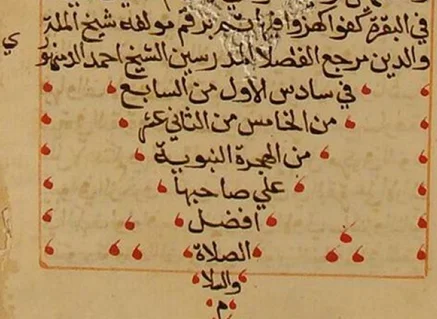 في البقرة كفوا هزوا فيها تم برقم مولفه شيخ الملة
والدين مرجع الفضلا المدرسين الشيخ احمد الدمنهو
ي
في سادس الاول من السابع
من الخامس من الثاني عشر
من الهجرة النبوية
علي صاحبها
افضل
الصلاة
والسلا
م